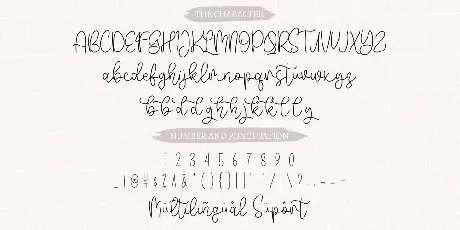 THE CHARACTER
ABCDEFGHIJKLMNOPQRSTUVWXYZ
abcdefghijklmnopqrstuvwxyz
b b d d g h h j k k l l y
NUMBER AND PUNCTUATION
1 2 3 4 5 6 7 8 9 0
Multilingual Siport